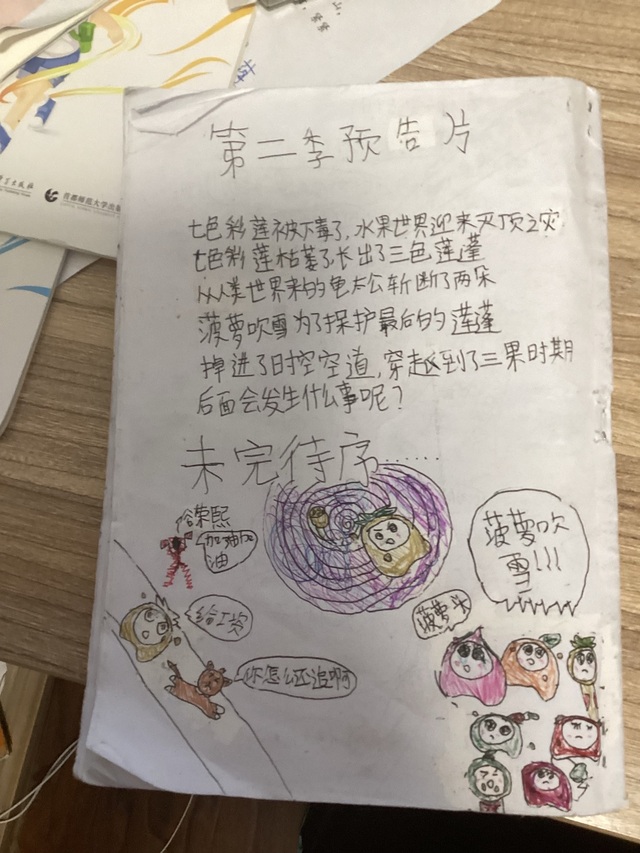 第二季预告片
七色彩莲被下毒了,水果世界迎来灭顶之灾
七色彩莲枯萎了长出了三色莲蓬
从人类世界来的龟太公斩断了两朵
菠萝吹雪为了保护最后的莲蓬
掉进了时空空道,穿越到了三果时期
后面会发生什么事呢?
未完待序……
荣熙
加油加
油
给工资
你怎么还追啊
菠萝吹
雪!!!
菠萝头
首都师范大学出版